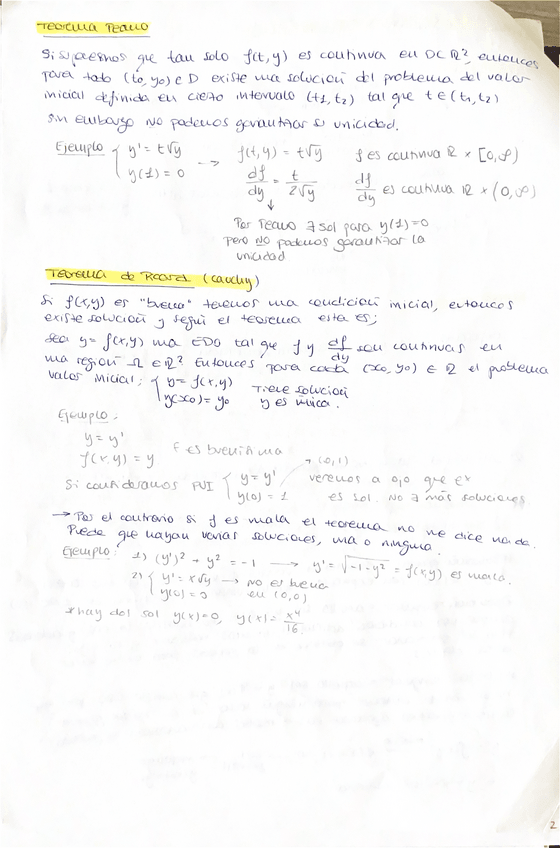 Teorema Peano
Si suponemos que tan solo f(t,y) es continua en D⊂ℝ², entonces
para todo (t0, y0) ∈ D existe una solución del problema del valor
inicial definida en cierto intervalo (t1, t2) tal que t ∈ (t1, t2)
sin embargo no podemos garantizar su unicidad.
Ejemplo { y' = t√y → f(t,y) = t√y f es continua ℝ × [0,∞)
y(1) = 0 df/dy = t/2√y df/dy es continua ℝ × (0,∞)
↓
Por Peano ∃ sol para y(1)=0
pero NO podemos garantizar la
unicidad
Teorema de Picard (Cauchy)
Si f(x,y) es "buena" tenemos una condición inicial, entonces
existe solución y según el teorema esta es;
Sea y = f(x,y) una EDO tal que f y df/dy son continuas en
una región Ω ∈ ℝ². Entonces para cada (x0, y0) ∈ ℝ el problema
valor inicial; { y = f(x,y) Tiene solución
y(x0) = y0 y es única.
Ejemplo;
y = y'
f(x,y) = y f es buenísima
Si consideramos PVI { y = y' → (0,1) veremos a 0,0 que eˣ
y(0) = 1 es sol. No ∃ más soluciones
→ Por el contrario si f es mala el teorema no me dice nada.
Puede que hayan varias soluciones, una o ninguna.
Ejemplo: 1) (y')² + y² = -1 → y' = √-1-y² = f(x,y) es mala.
2) { y' = x√y → no es buena
y(0) = 0 en (0,0)
*hay dol sol y(x)=0, y(x) = x⁴/16
2